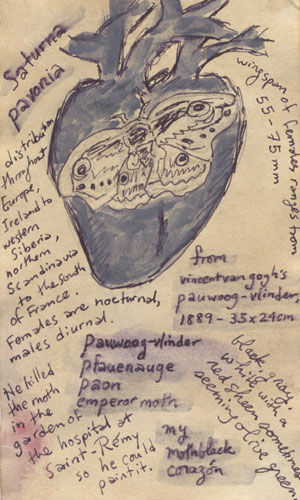 Saturnia
pavonia
wingspan of females ranges from
55-75 mm
distribution
throughout
Europe,
Ireland to
western
Siberia,
northern
Scandinavia
to the south
of France.
Females are nocturnal,
males diurnal.
He killed
the moth
in the
garden of
the hospital at
Saint-Rémy
so he could
paint it.
from
vincent van gogh's
pauwoog-vlinder
1889 - 35x24cm
pauwoog-vlinder
pfauenauge
paon
emperor moth
my
mothblack
corazón
black, gray,
white with a
red sheen sometimes
seeming olive green